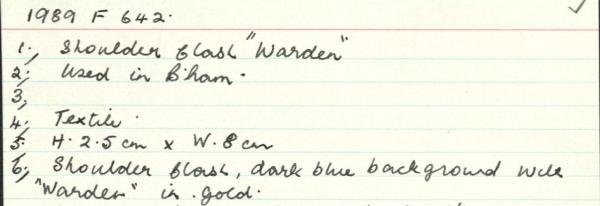 1989 F 642.
1., Shoulder flash "Warden"
2., Used in B'ham.
3,
4., Textile.
5. H. 2.5 cm x W. 8 cm
6., Shoulder flash, dark blue background with
"Warden" in gold.